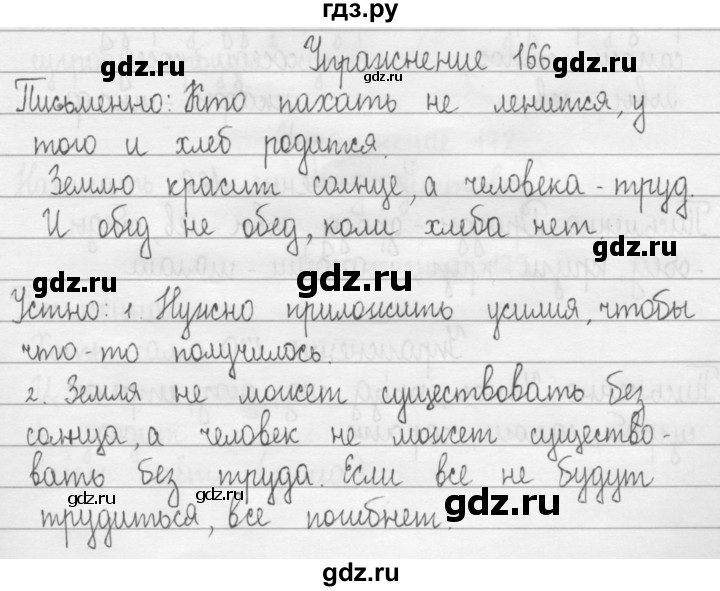 гдз.ру
Упражнение 166
gdz.ru
gdz.ru
gdz.ru
Письменно: Кто пахать не ленится, у
того и хлеб родится.
Землю красит солнце, а человека - труд.
И обед не обед, коли хлеба нет.
gdz.ru
gdz.ru
Устно: 1. Нужно приложить усилия, чтобы
что-то получилось.
2. Земля не может существовать без
солнца а человек не может существо-
вать без труда. Если все не будут
gdz.ru
gdz.ru
трудиться, все погибнет.
gdz.ru
gdz.ru